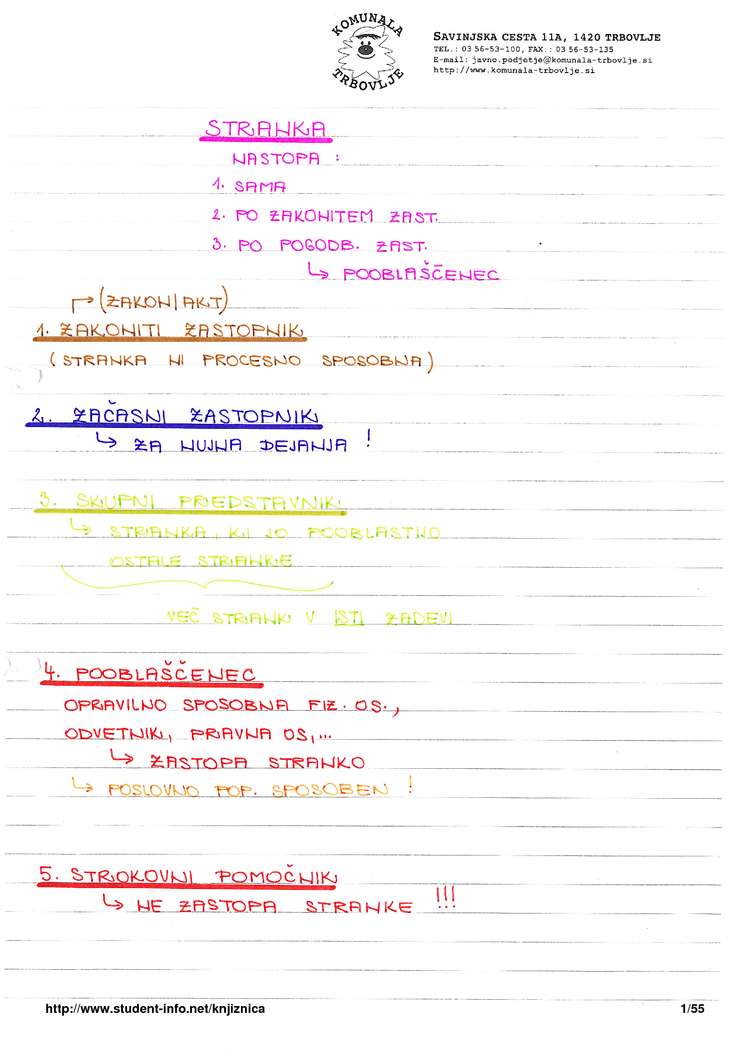 KOMUNALA
TRBOVLJE
SAVINJSKA CESTA 11A, 1420 TRBOVLJE
TEL.: 03 56-53-100, FAX.: 03 56-53-135
E-mail: javno.podjetje@komunala-trbovlje.si
http://www.komunala-trbovlje.si
STRANKA
NASTOPA :
1. SAMA
2. PO ZAKONITEM ZAST.
3. PO POGODB. ZAST.
↳ POOBLAŠČENEC
(ZAKON|AKT)
1. ZAKONITI ZASTOPNIK
(STRANKA NI PROCESNO SPOSOBNA)
2. ZAČASNI ZASTOPNIK
↳ ZA NUJNA DEJANJA !
3. SKUPNI PREDSTAVNIK
↳ STRANKA, KI JO POOBLASTIJO
OSTALE STRANKE
VEČ STRANK V ISTI ZADEVI
4. POOBLAŠČENEC
OPRAVILNO SPOSOBNA FIZ. OS.,
ODVETNIK, PRAVNA OS,...
↳ ZASTOPA STRANKO
↳ POSLOVNO POP. SPOSOBEN !
5. STROKOVNI POMOČNIK
↳ NE ZASTOPA STRANKE !!!
http://www.student-info.net/knjiznica
1/55